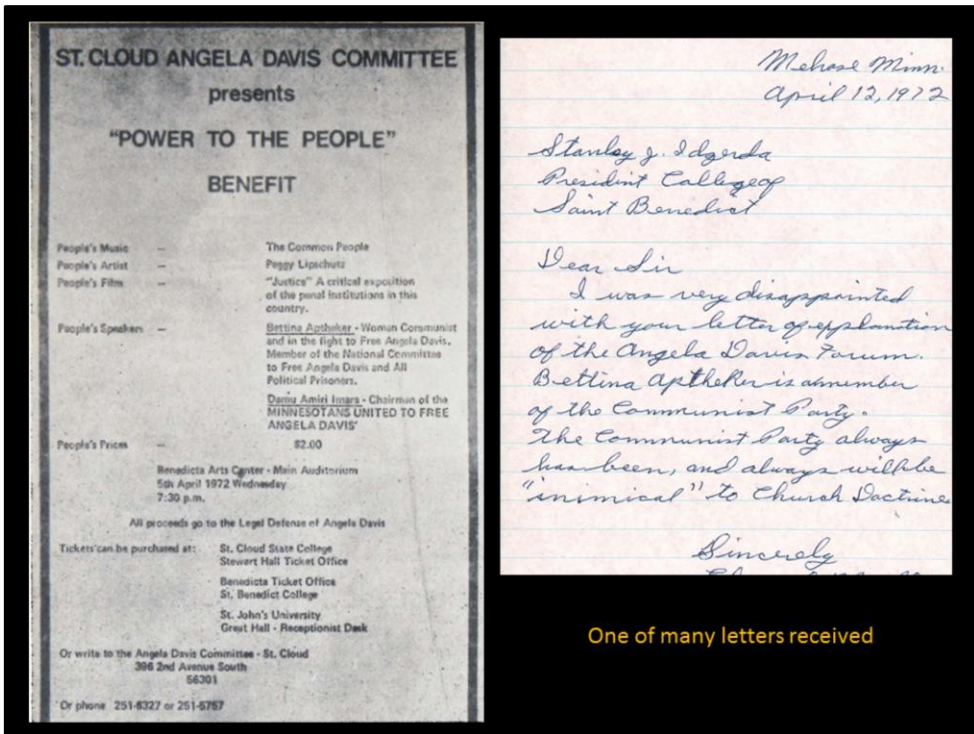 ST. CLOUD ANGELA DAVIS COMMITTEE
presents
"POWER TO THE PEOPLE"
BENEFIT
People's Music — The Common People
People's Artist — Peggy Lipschutz
People's Film — "Justice" A critical exposition
of the penal institutions in this
country.
People's Speakers — Bettina Aptheker - Woman Communist
and in the fight to Free Angela Davis.
Member of the National Committee
to Free Angela Davis and All
Political Prisoners.
Damu Amiri Imara - Chairman of the
MINNESOTANS UNITED TO FREE
ANGELA DAVIS'
People's Prices — $2.00
Benedicta Arts Center - Main Auditorium
5th April 1972 Wednesday
7:30 p.m.
All proceeds go to the Legal Defense of Angela Davis
Tickets can be purchased at: St. Cloud State College
Stewart Hall Ticket Office
Benedicta Ticket Office
St. Benedict College
St. John's University
Great Hall - Receptionist Desk
Or write to the Angela Davis Committee - St. Cloud
396 2nd Avenue South
56301
Or phone 251-5327 or 251-5757
Melrose Minn.
April 12, 1972
Stanley J. Idzerda
Presidint College of
Saint Benedict
Dear Sir
I was very disappointed
with your letter of explanation
of the Angela Davis Forum.
Bettina Aptheker is a member
of the Communist Party.
The Communist Party always
has been, and always will be
"inimical" to Church Doctrine
Sincerely
One of many letters received